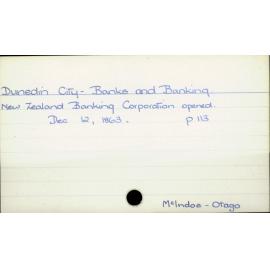 Dunedin City - Banks and Banking.
New Zealand Banking Corporation opened.
Dec 12, 1863. p 113
McIndoe - Otago